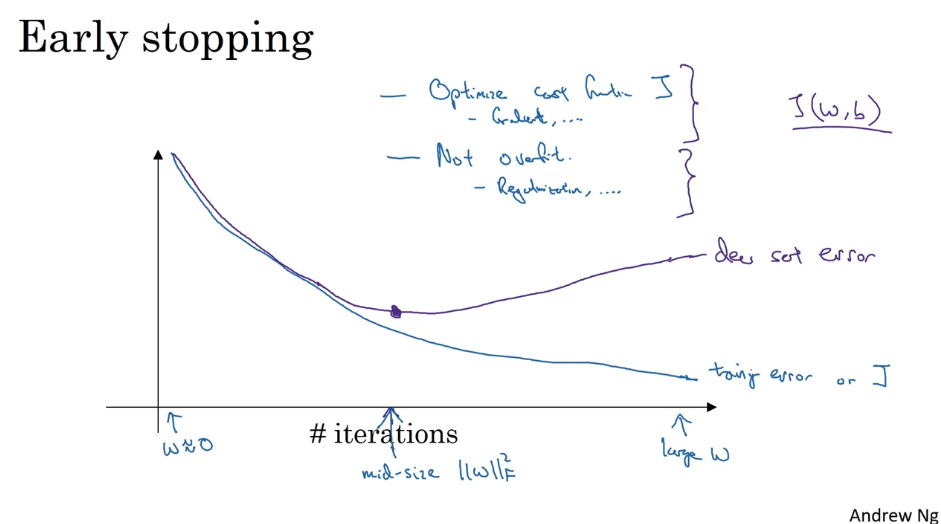 Early stopping
— Optimize cost function J
- Gradient, ....
— Not overfit.
- Regularization, ....
J(w,b)
dev set error
training error or J
w≈0
# iterations
mid-size ||w||²_F
large w
Andrew Ng